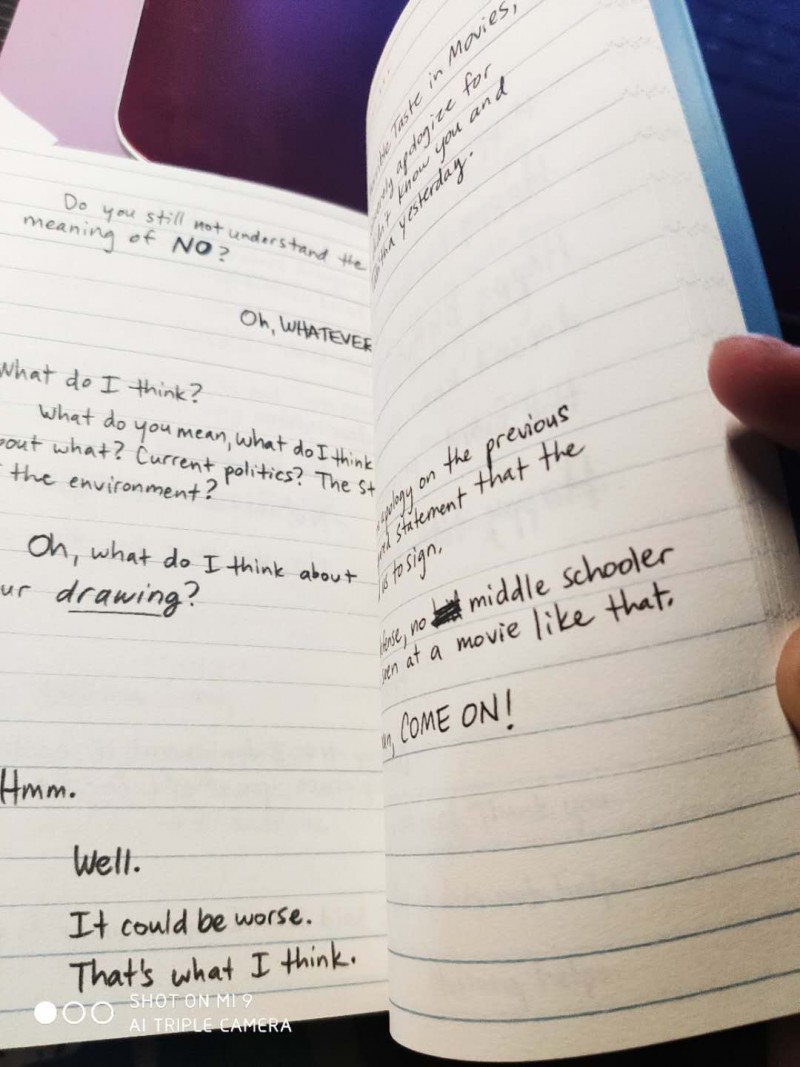 Do you still not understand the
meaning of NO?
Oh, WHATEVER
What do I think?
What do you mean, what do I think
what? Current politics? The
the environment?
Oh, what do I think about
drawing?
Hmm.
Well.
It could be worse.
That's what I think.
Taste in Movies,
apologize for
know you and
yesterday.
on the previous
statement that the
to sign.
no middle schooler
at a movie like that.
COME ON!
SHOT ON MI 9
AI TRIPLE CAMERA